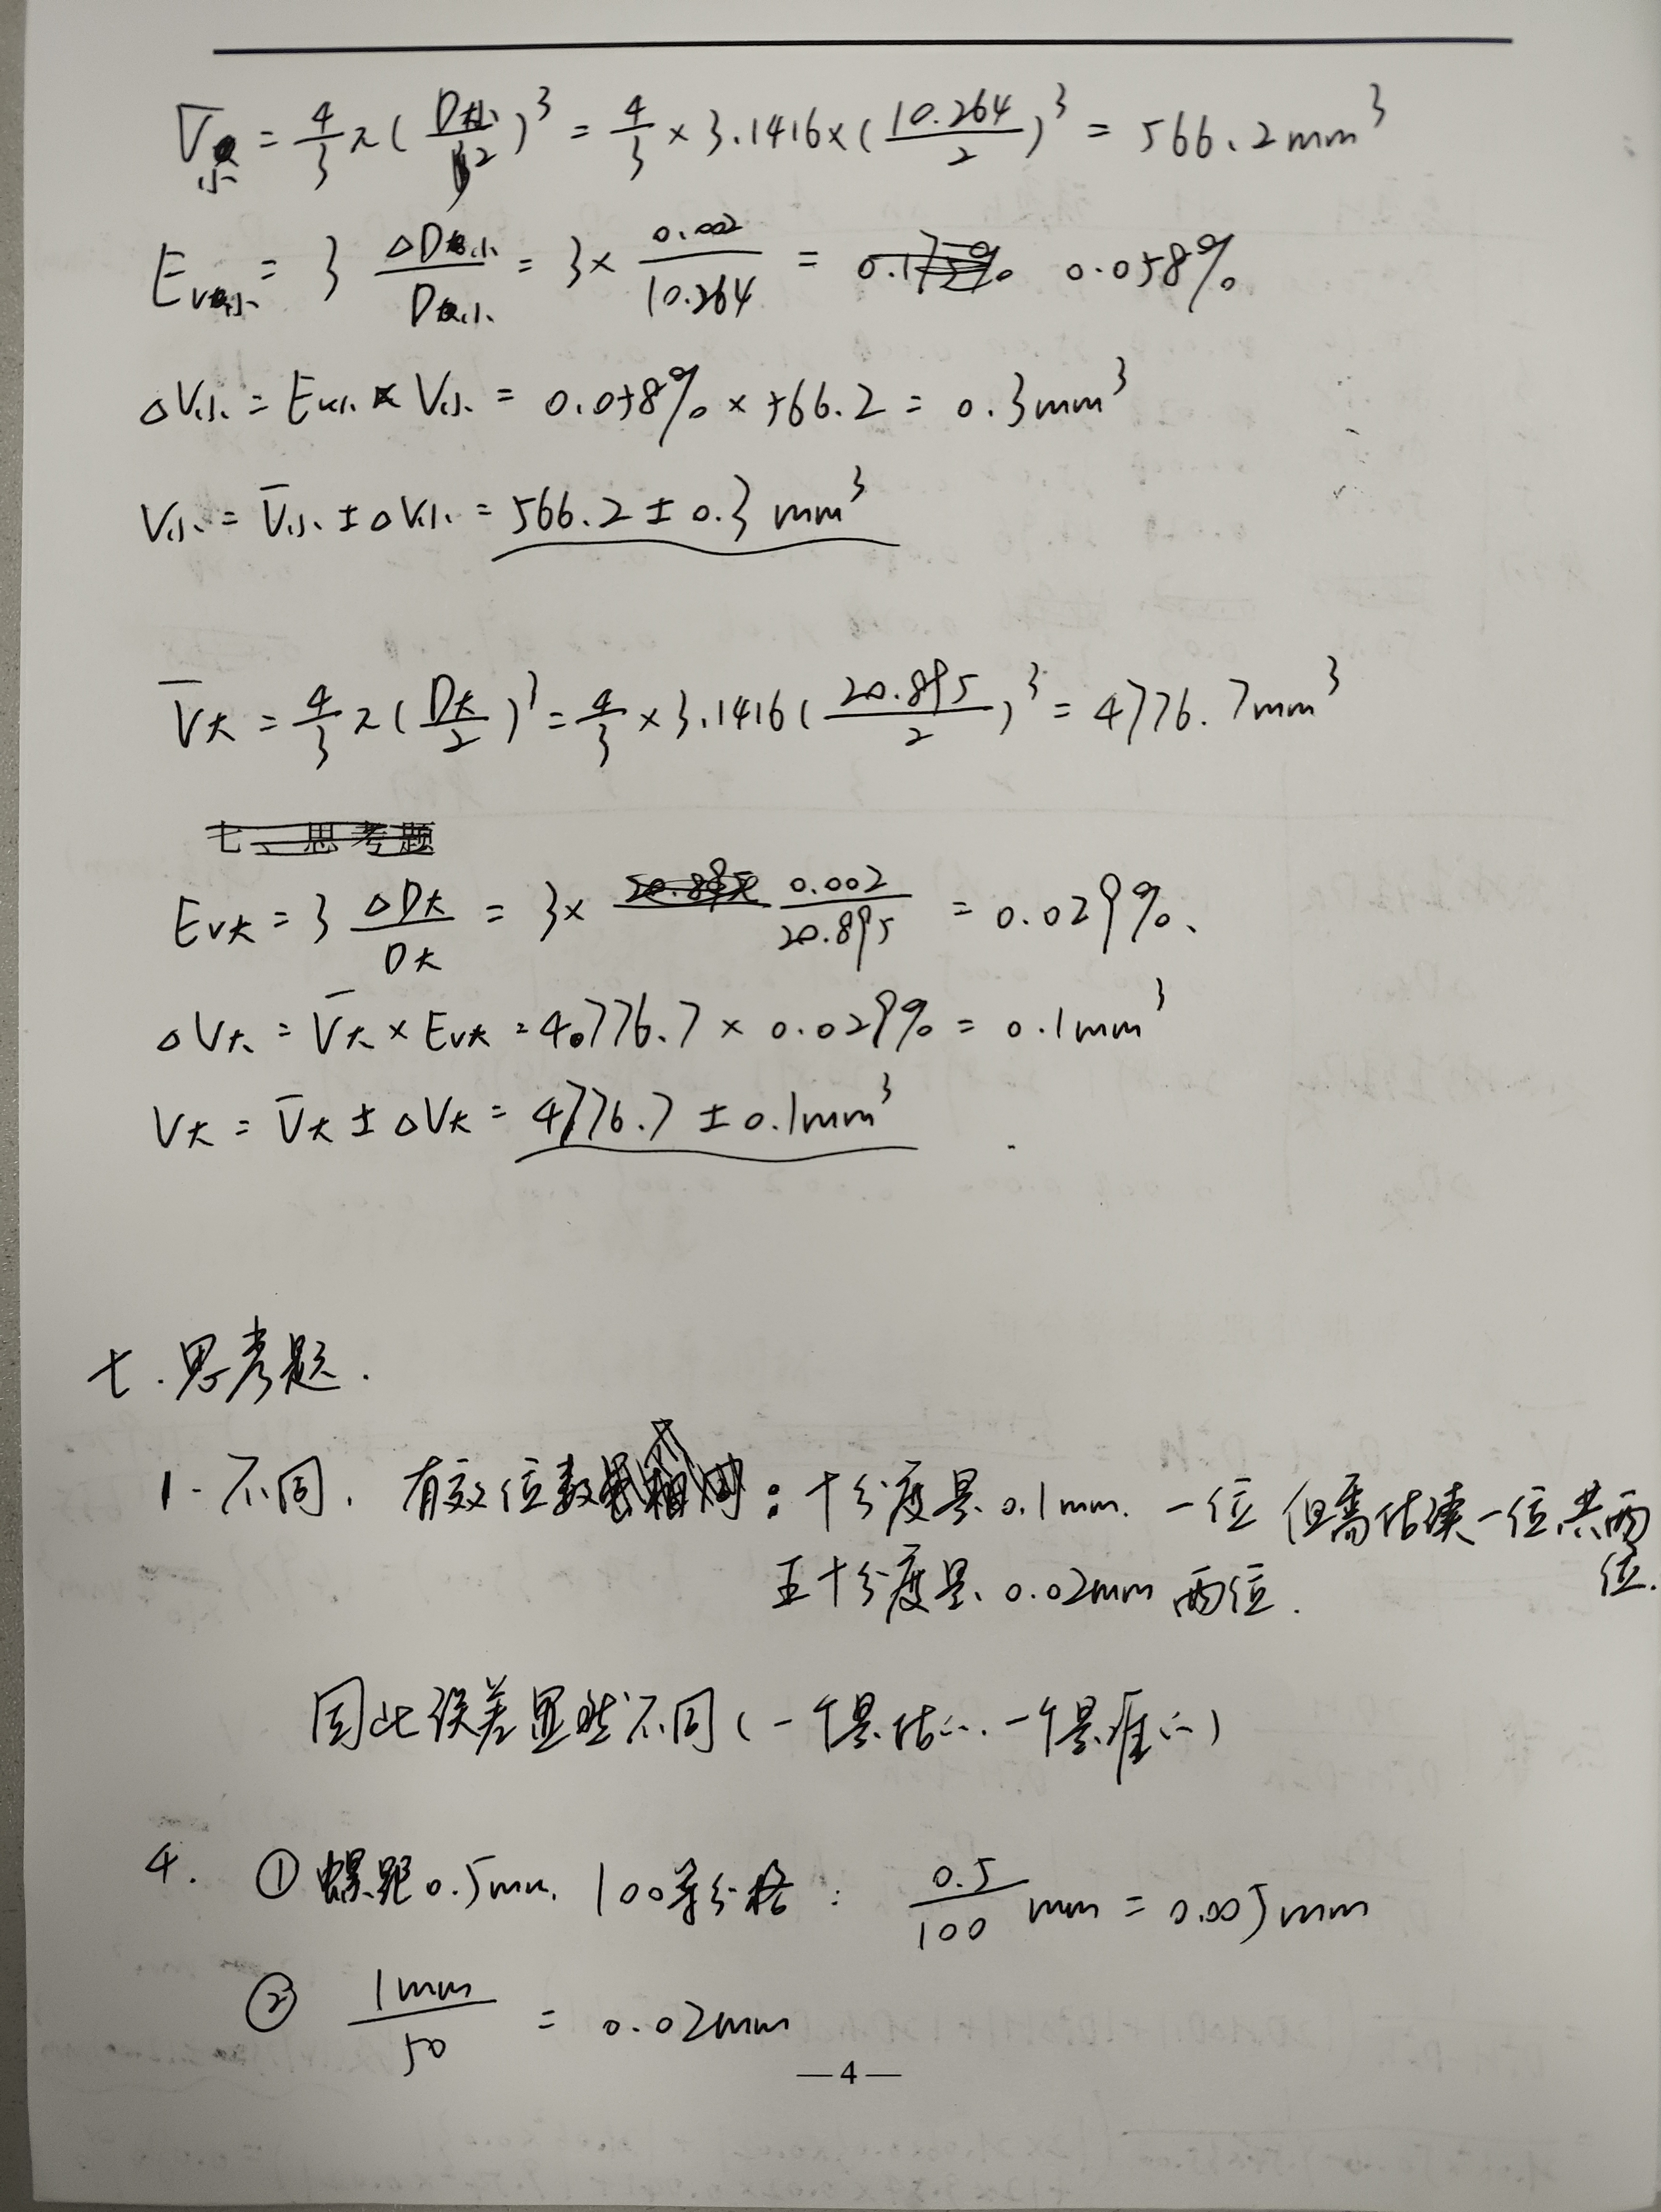 V̄小 = 4/3 π ( D小/2 )³ = 4/3 × 3.1416 × ( 10.264/2 )³ = 566.2 mm³
Ev小 = 3 ΔD小/D小 = 3 × 0.002/10.264 = 0.058%
ΔV小 = Ev小 × V小 = 0.058% × 566.2 = 0.3 mm³
V小 = V̄小 ± ΔV小 = 566.2 ± 0.3 mm³
V̄大 = 4/3 π ( D大/2 )³ = 4/3 × 3.1416 ( 20.895/2 )³ = 4776.7 mm³
七、思考题
Ev大 = 3 ΔD大/D大 = 3 × 20.895 0.002/20.895 = 0.029%、
ΔV大 = V̄大 × Ev大 = 4776.7 × 0.029% = 0.1 mm³
V大 = V̄大 ± ΔV大 = 4776.7 ± 0.1 mm³
七.思考题.
1. 不同. 有效位数：十分度是0.1mm. 一位 但需估读一位共两位.
五十分度是0.02mm 两位.
因此误差显然不同(一个是估的.一个是准的)
4. ① 螺距0.5mm. 100等分格： 0.5/100 mm = 0.005mm
② 1mm/50 = 0.02mm
—4—